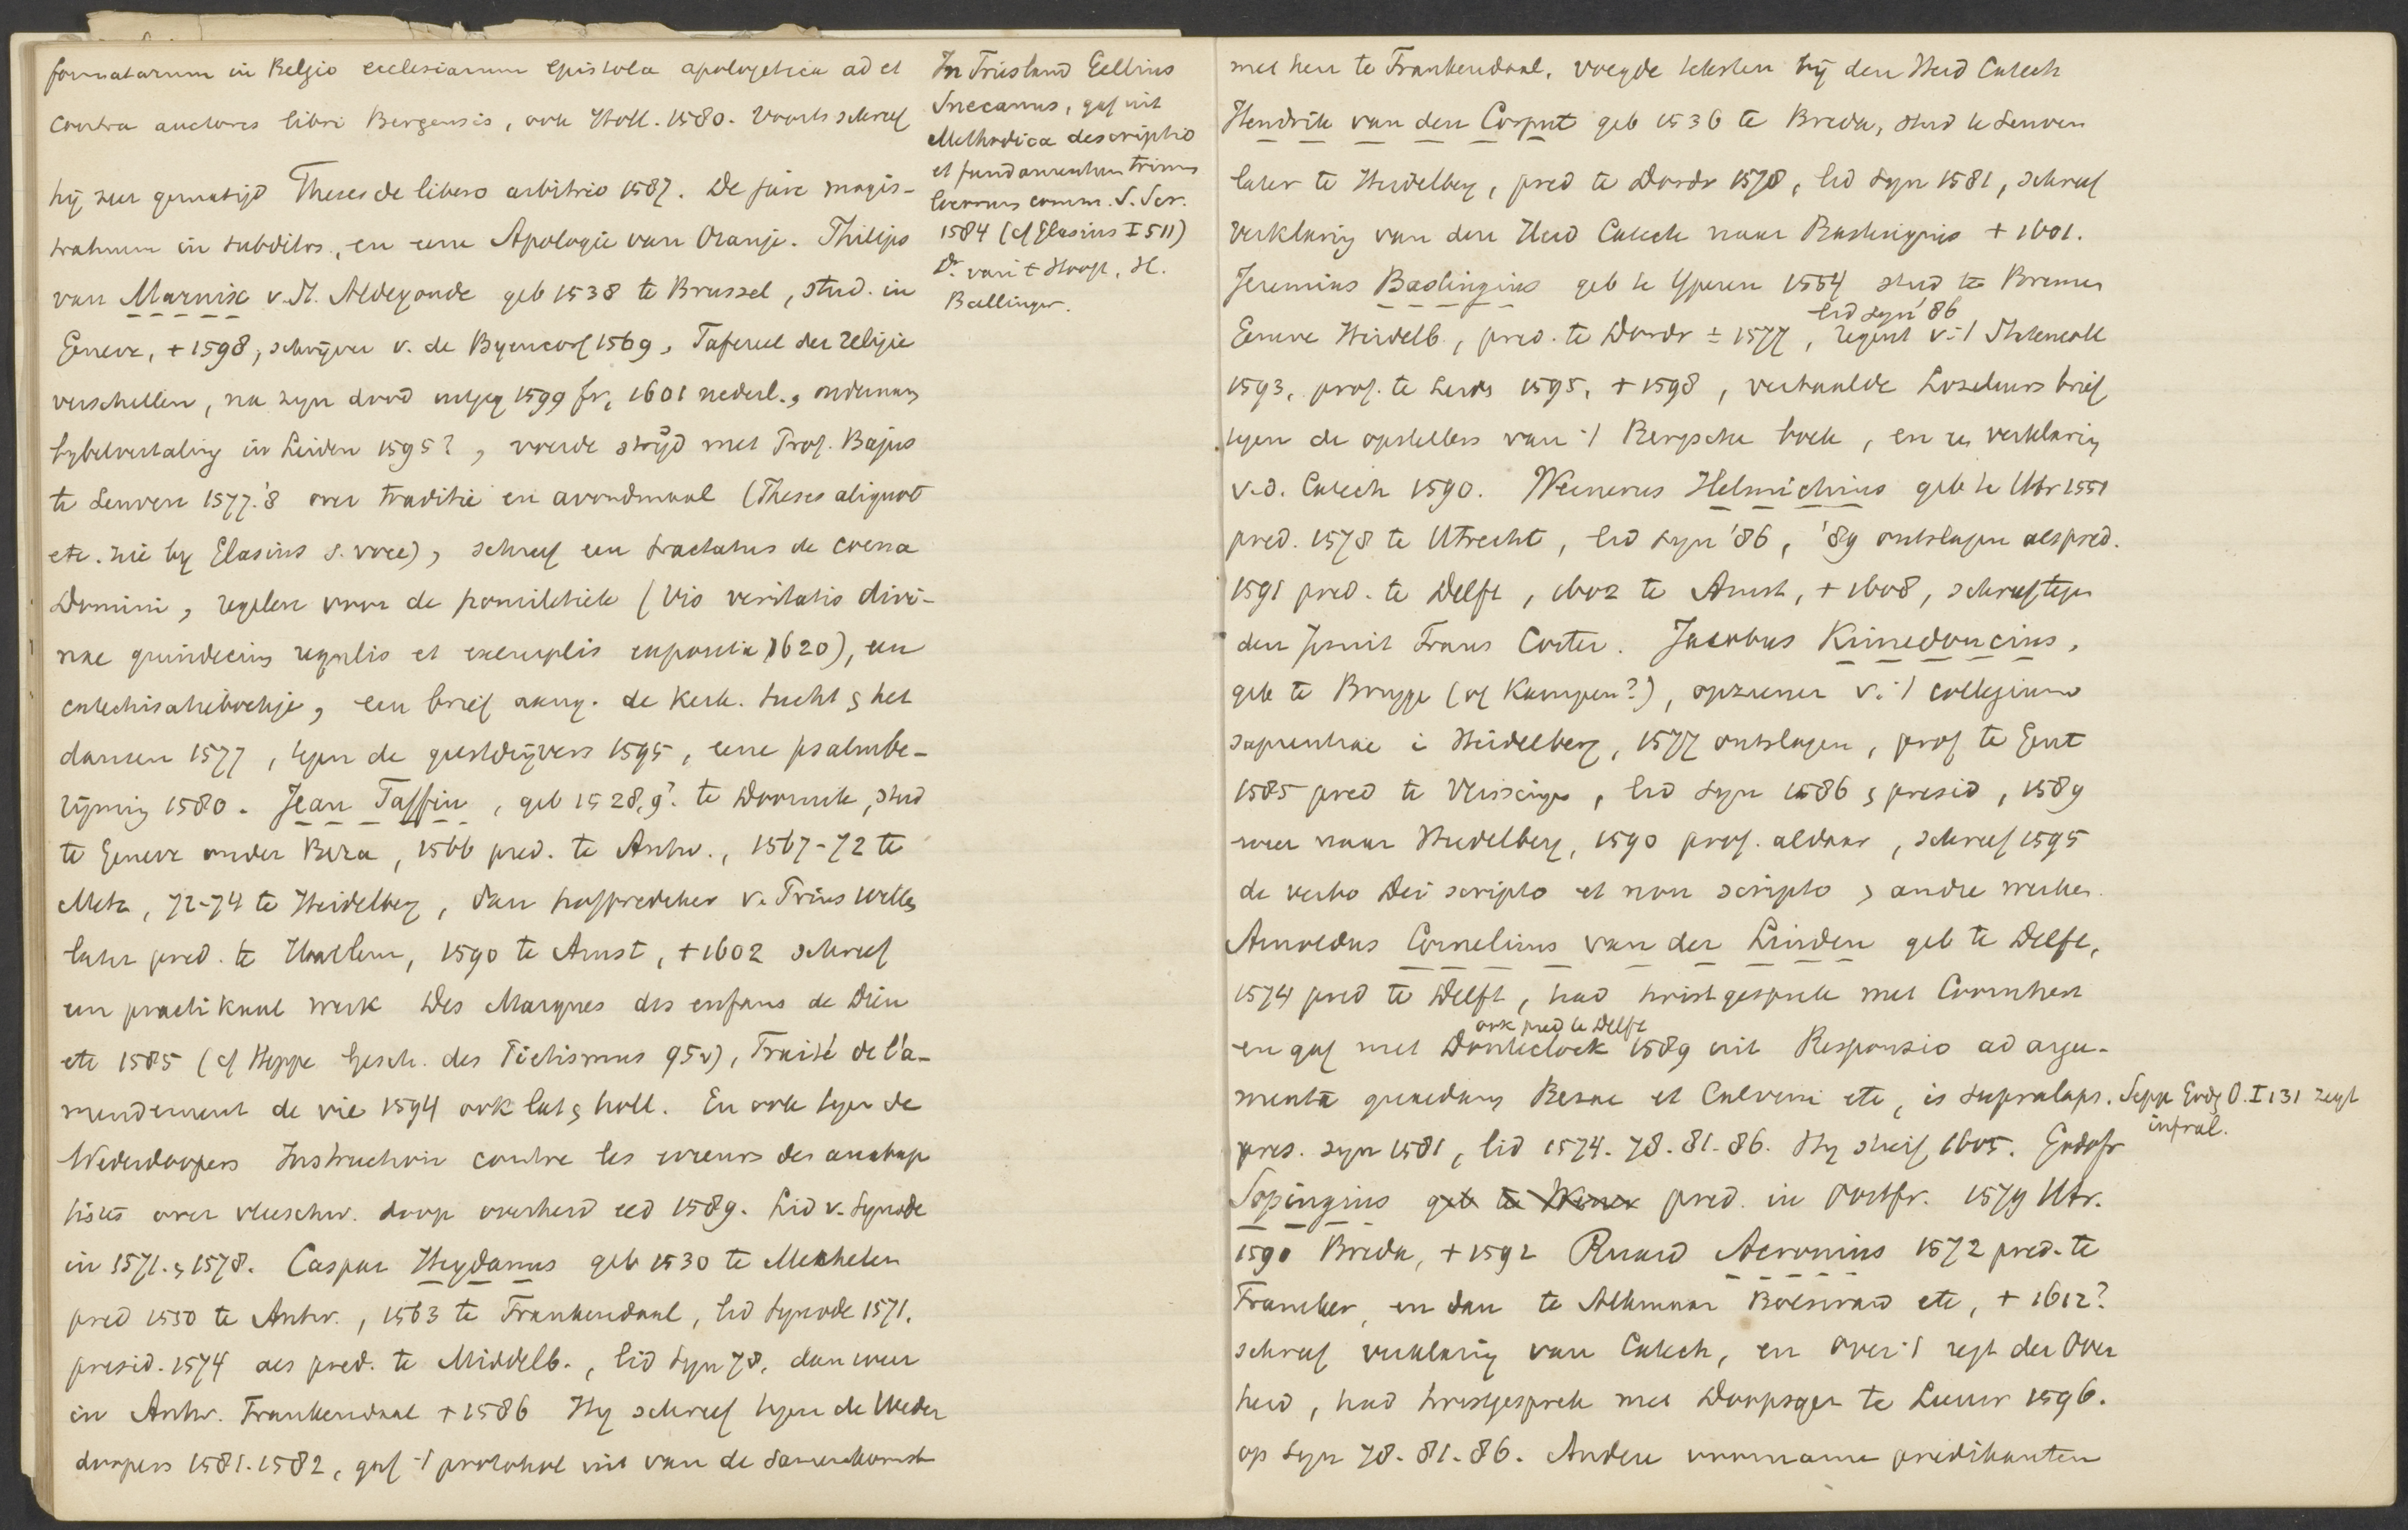 formatarum in Belgio ecclesiarum epistola apologetica ad et
contra auctores libri Bergensis, ook Holl. 1580. Voorts schreef
hij zeer gematigd Theses de libero arbitrio 1587. De jure magis-
tratuum in subditos, en eene Apologie van Oranje. Philips
van Marnix v. St. Aldegonde geb 1538 te Brussel, stud. in
Geneve, + 1598, schrijver v. de Byencorf 1569, Tafereel der religie
verschillen, na zijn dood uitgeg 1599 fr, 1601 nederl., ondernam
bybelvertaling in Leiden 1595?, voerde strijd met Prof. Bajus
te Leuven 1577.'8 over traditie en avondmaal (Theses aliquot
etc. zie by Glasius s. voce), schreef een tractatus de coena
Domini, regelen voor de homiletiek (Vis veritatis divi-
nae quindecim regulis et exemplis exposita 1620), een
catechisatieboekje, een brief aang. de kerk. tucht & het
dansen 1577, tegen de geestdrijvers 1595, eene psalmbe-
rijming 1580. Jean Taffin, geb 1528,9? te Doornik, stud
te Geneve onder Beza, 1566 pred. te Antw., 1567-72 te
Metz, 72-74 te Heidelberg, dan hofprediker v. Prins Willem
later pred. te Haarlem, 1590 te Amst, + 1602 schreef
een practikaal werk Des Marques des enfans de Dieu
etc 1585 (cf Heppe Gesch. des Pietismus 95v), Traité de l'a-
mendement de vie 1594 ook lat & holl. En ook tegen de
Wederdoopers Instruction contre les erreurs des anabap
tistes over vleeschw. doop overheid eed 1589. Lid v. Synode
in 1571. & 1578. Caspar Heydanus geb 1530 te Mechelen
pred 1550 te Antw., 1563 te Frankendaal, lid Synode 1571,
presid. 1574 als pred. te Middelb., lid Syn 78, dan weer
in Antw. Frankendaal + 1586 Hy schreef tegen de Weder
doopers 1581.1582, gaf 't protokol uit van de samenkomst
In Friesland Gellius
Snecanus, gaf uit
Methodica descriptio
et fundamentum trium
locorum comm. S. Scr.
1584 (cf Glasius I 511)
Dr. van 't Hooft, H.
Bullinger.
met hen te Frankendaal, voegde teksten bij den Heid Catech
Hendrik van den Corput geb 1536 te Breda, stud te Leuven
later te Heidelberg, pred te Dordr 1578, lid Syn 1581, schreef
verklaring van den Heid Catech naar Bastingius + 1601.
Jeremias Bastingius geb te Yperen 1554 stud te Bremen
lid Syn '86
Geneve Heidelb., pred. te Dordr ± 1577, regent v. 't Statencoll
1593, prof. te Leid 1595, + 1598, vertaalde Loseleurs brief
tegen de opstellers van 't Bergsche boek, en zn verklaring
v.d. Catech 1590. Wernerus Helmichius geb te Utr 1551
pred. 1578 te Utrecht, lid Syn '86, '89 ontslagen als pred.
1591 pred. te Delft, 1602 te Amst, + 1608, schreef tegen
den Jesuit Frans Coster. Jacobus Kimedoncius,
geb te Brugge (of Kampen?), opziener v. 't collegium
sapientiae i Heidelberg, 1577 ontslagen, prof te Gent
1585 pred te Vlissingen, lid Syn 1586 & presid, 1589
weer naar Heidelberg, 1590 prof. aldaar, schreef 1595
de verbo Dei scripto et non scripto & andre werken.
Arnoldus Cornelius van der Linden geb te Delft,
1574 pred te Delft, had twistgesprek met Coornhert
ook pred te Delft
en gaf met Donteclock 1589 uit Responsio ad argu-
menta quaedam Bezae et Calvini etc, is supralaps. Sepp Godg O. I 131 zegt
infral.
pres. syn 1581, lid 1574. 78. 81. 86. Hy stierf 1605. Godefr
Sopingius geb te pred. in Oostfr. 1579 Utr.
1590 Breda, + 1592 Ruard Acronius 1572 pred. te
Franeker, en dan te Alkmaar Bolsward etc, + 1612?
schreef verklaring van Catech, en over 't regt der Over
heid, had twistgesprek met Doopsgez te Leeuw 1596.
op Syn 78. 81. 86. Andere voorname predikanten